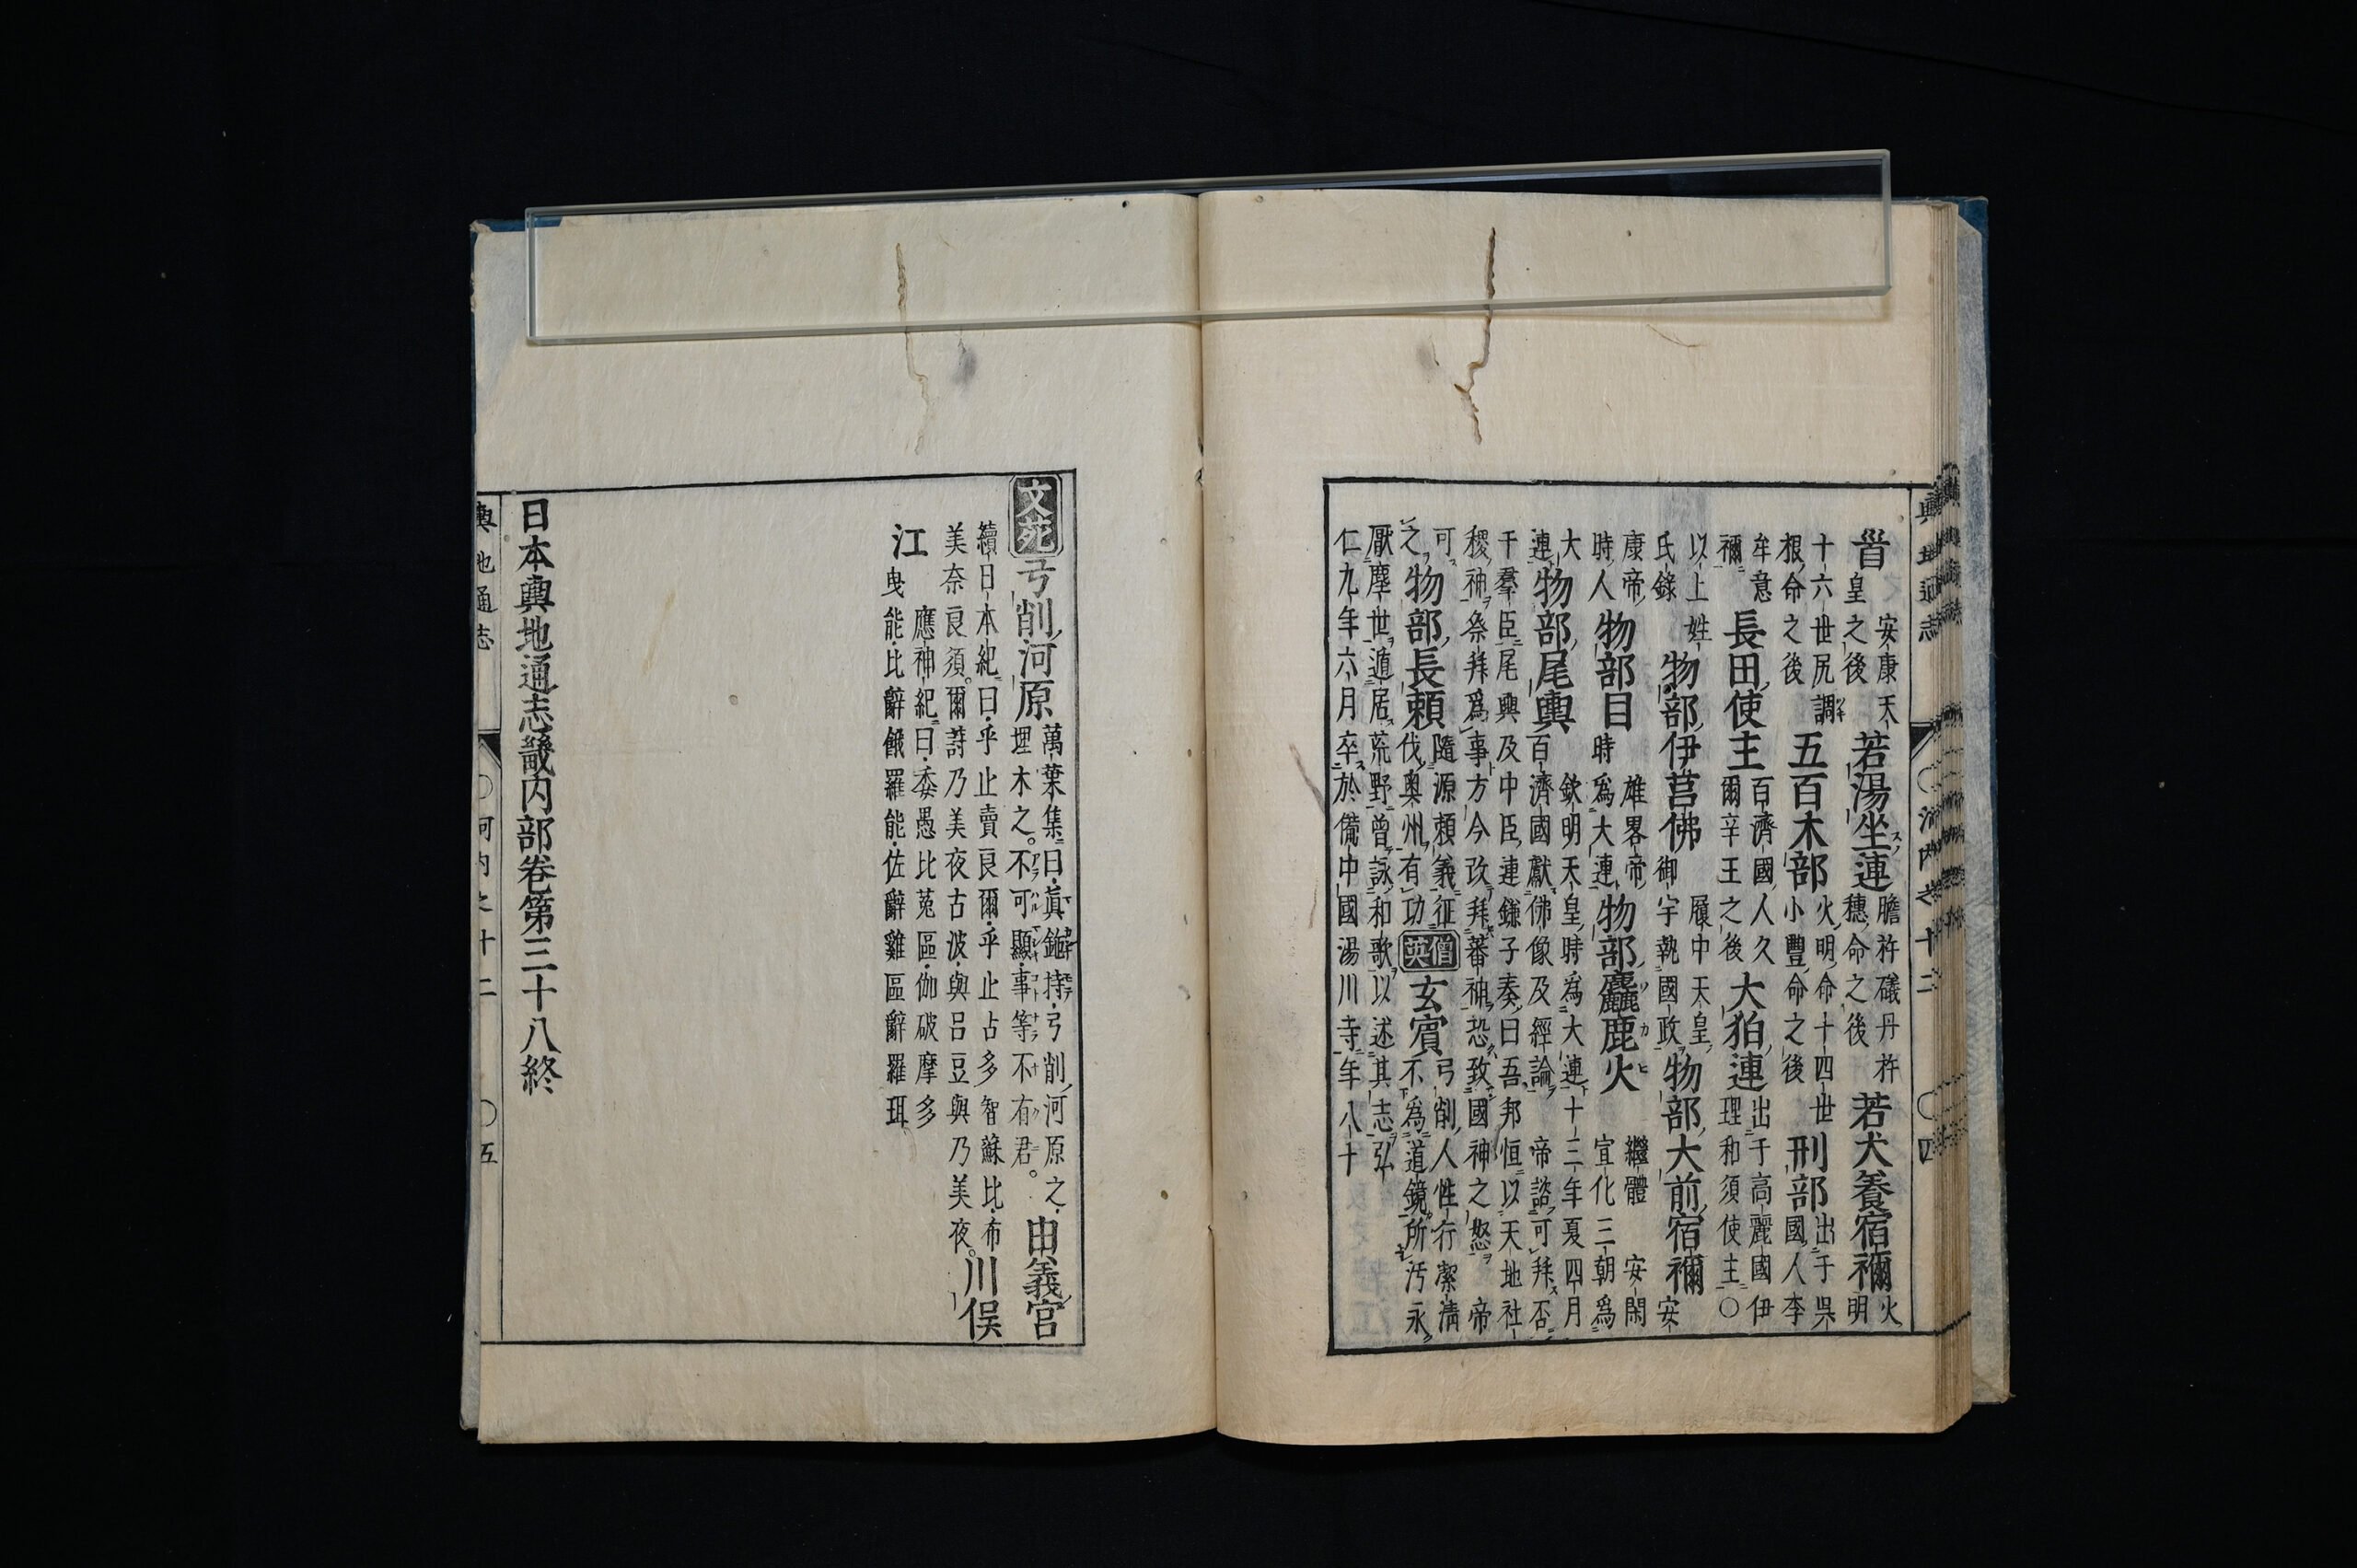 輿地通志 ○河内之十二 ○四
首 安康天皇之後 若湯坐連 膽杵磯丹杵穗命之後 若犬養宿禰 火明
十六世尻調根命之後 五百木部 火明命十四世小豐命之後 刑部 出于呉國人李
牟意禰 長田使主 百濟國人久爾辛王之後 大狛連 出于高麗國伊理和須使主○
以上姓氏錄 物部伊莒佛 履中天皇御宇執國政 物部大前宿禰 安
康帝時人 物部目 雄畧帝時爲大連 物部麤鹿火 繼體 安閑宜化三朝爲
大連 物部尾輿 欽明天皇時為大連十三年夏四月百濟國獻佛像及經論 帝諮可拜否
干羣臣尾輿及中臣連鎌子奏曰吾邦恒以天地社稷神祭拜爲事方今改拜蕃神恐致國神之怒 帝
可之 物部長頼 隨源頼義征伐奥州有功 僧英 玄賓 弓削人性行潔清不為道鏡所汚永
厭塵世遁居荒野曾詠和歌以述其志弘仁九年六月卒於備中國湯川寺年八十
文苑 弓削河原 萬葉集曰真鉇持弓削河原之埋木之。不可顯事等不有君。 由義宮
續日本紀曰乎止賣良爾乎止占多智蘇比布美奈良須。爾詩乃美夜古波與呂豆與乃美夜。 川俣
江 應神紀曰委愚比菟區伽破摩多曳能比辭餓羅能佐辭雞區辭羅珥
日本輿地通志畿内部卷第三十八終
輿地通志 ○河内之十二 ○五